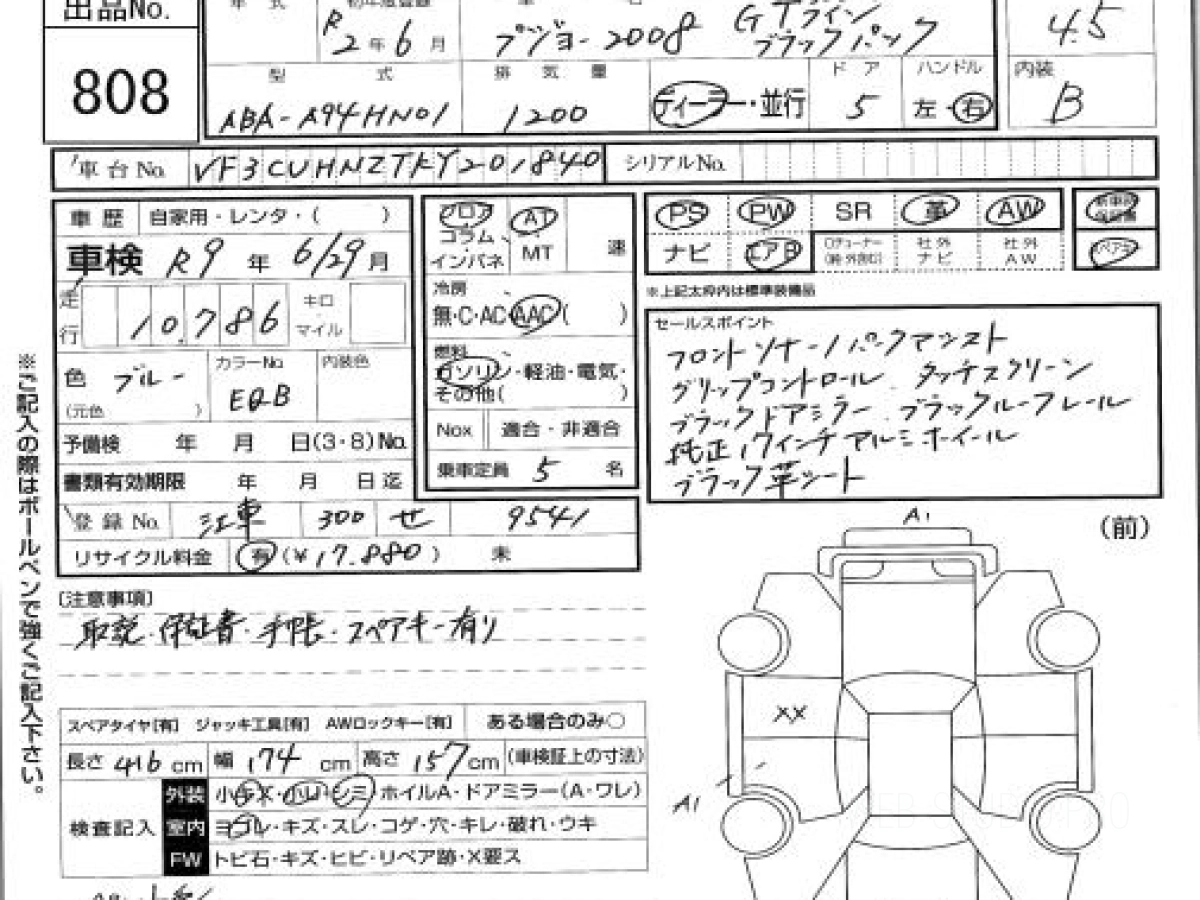 出品No.
808
年 式
初年度登録
R2年6月
プジョー2008 GTライン
ブラックパック
4.5
型 式
ABA-A94HN01
排 気 量
1200
ディーラー・並行
ドア
5
ハンドル
左・右
内装
B
車台No. VF3CUHNZTKY201840
シリアルNo.
車歴 自家用・レンタ・( )
車検 R9年6/29月
走行 10,786 キロ・マイル
色 ブルー
(元色 )
カラーNo
EQB
内装色
予備検 年 月 日(3・8)No.
書類有効期限 年 月 日迄
登録No. 300 せ 9541
リサイクル料金 有(¥17,880) 未
フロア
コラム
インパネ
AT
MT
速
冷房
無・C・AC・AAC( )
燃料
ガソリン・軽油・電気・
その他( )
Nox 適合・非適合
乗車定員 5 名
PS PW SR 革 AW
ナビ エアB 社外ナビ 社外AW
新車時保証書
スペアキー
※上記太枠内は標準装備品
セールスポイント
フロントソナー/パークアシスト
グリップコントロール タッチスクリーン
ブラックドアミラー ブラックルーフレール
純正17インチアルミホイール
ブラック革シート
[注意事項]
取説・保証書・手帳・スペアキー有り
※ご記入の際はボールペンで強くご記入下さい。
スペアタイヤ[有] ジャッキ工具[有] AWロックキー[有] ある場合のみ○
長さ 416 cm 幅 174 cm 高さ 157 cm (車検証上の寸法)
検査記入
外装 小キズ・小凹・シミ・ホイルA・ドアミラー(A・ワレ)
室内 ヨゴレ・キズ・スレ・コゲ・穴・キレ・破れ・ウキ
FW トビ石・キズ・ヒビ・リペア跡・X要ス
A1
(前)
XX
A1